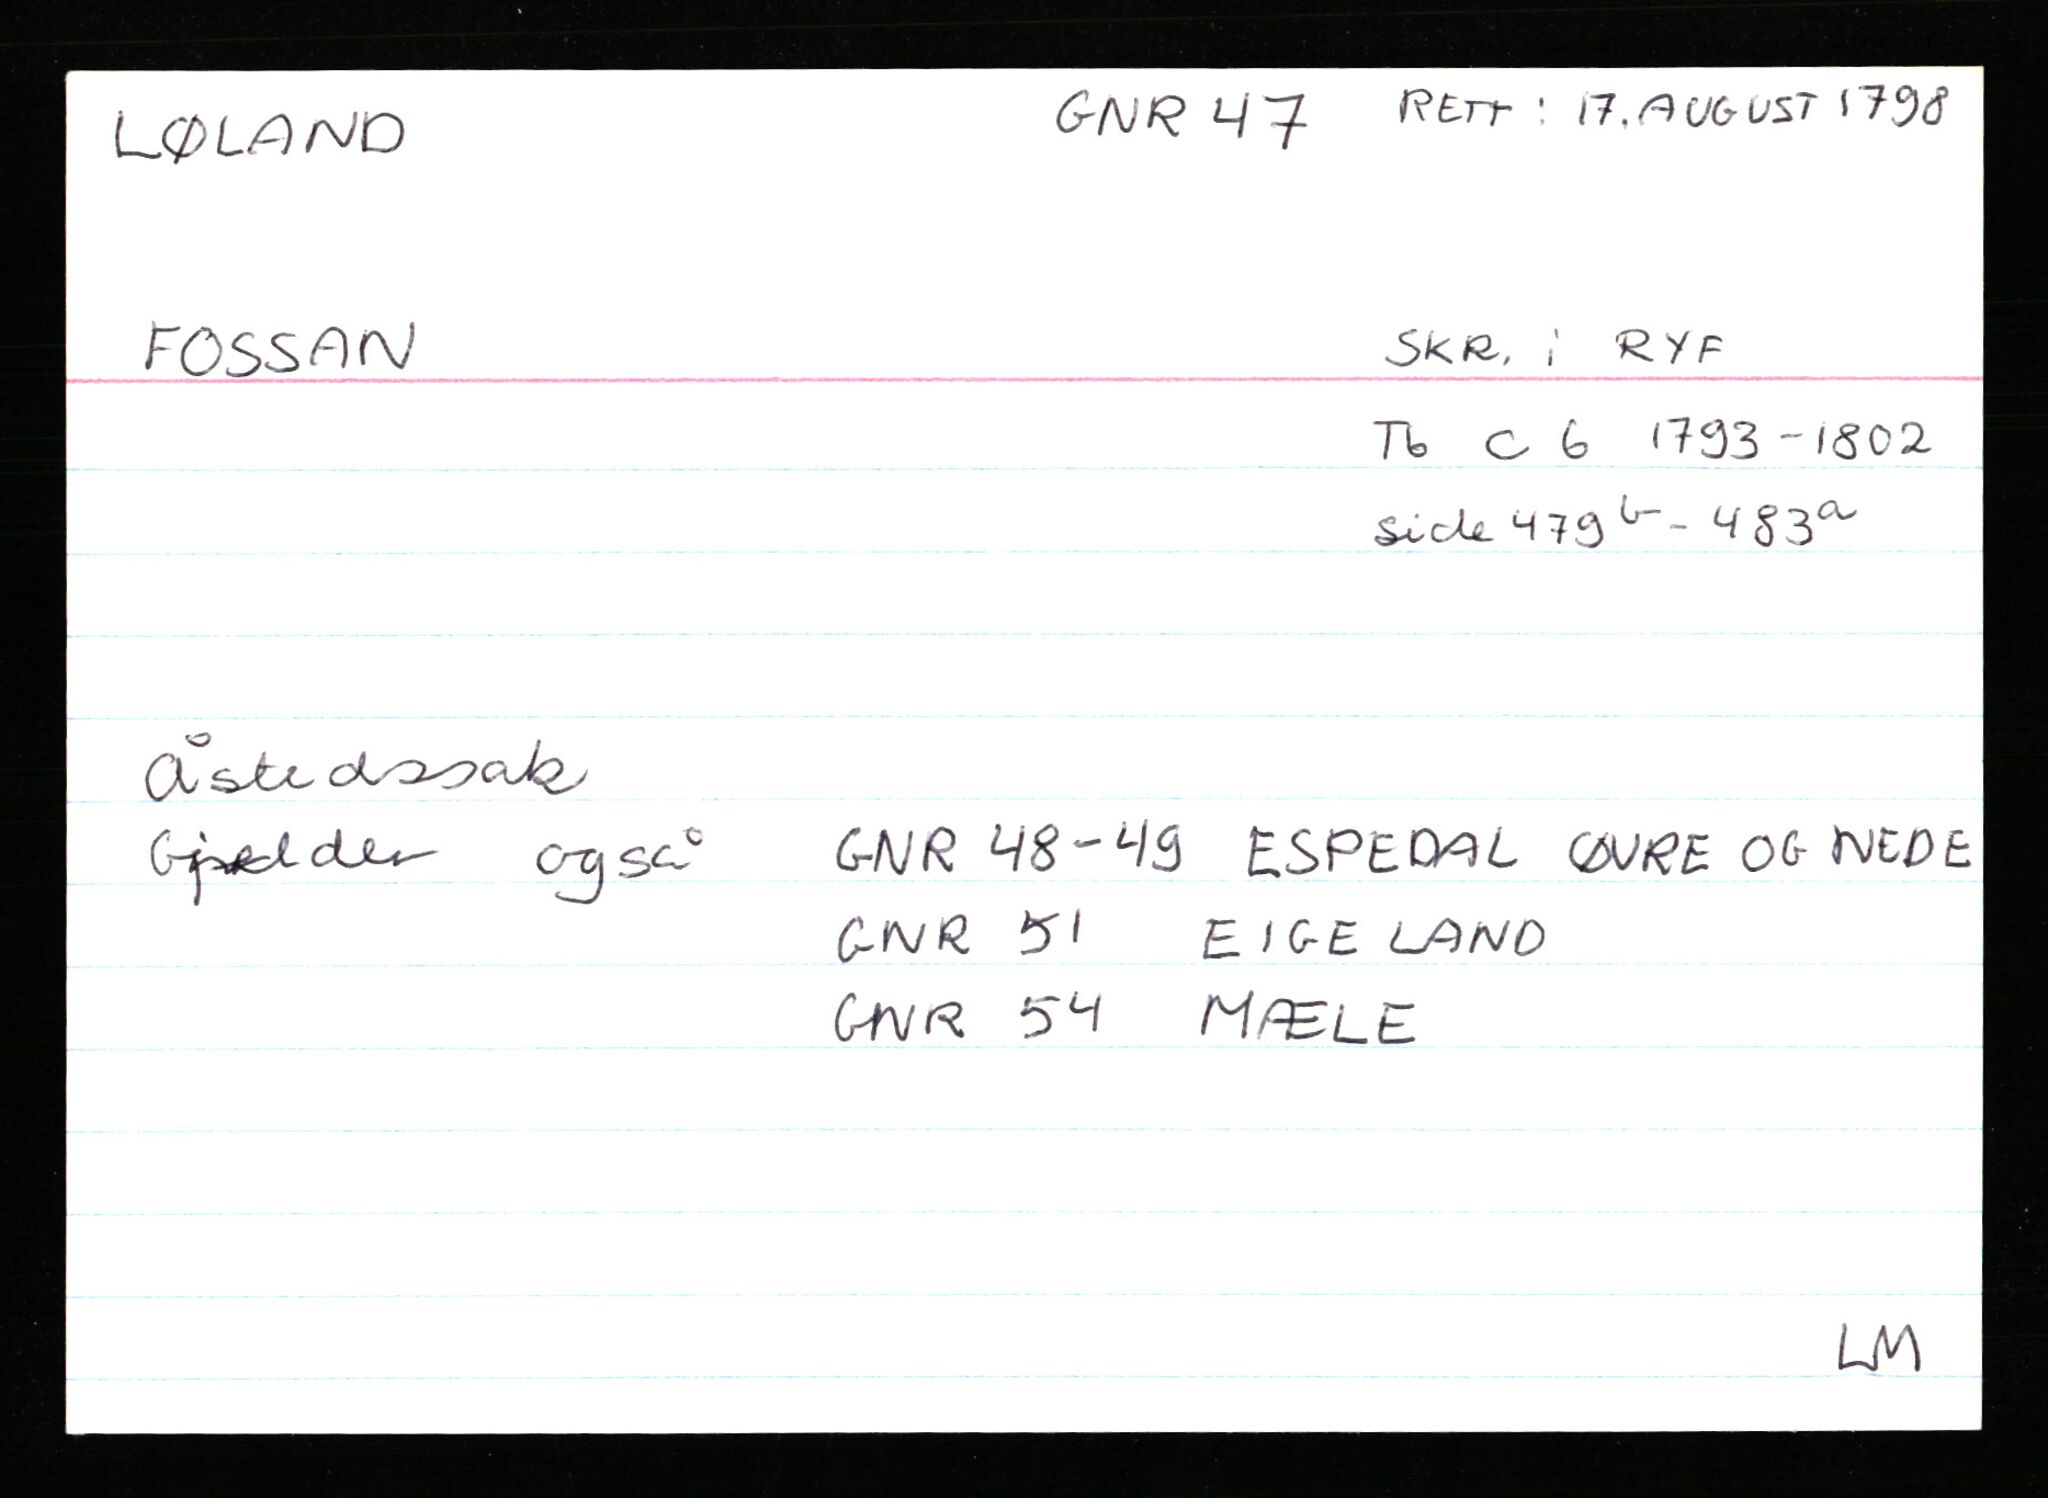 LØLAND GNR 47 RETT : 17. AUGUST 1798
FOSSAN SKR. i RYF
Tb C 6 1793-1802
side 479b - 483a
Åstedssak
Gjelder også GNR 48-49 ESPEDAL ØVRE OG NEDE
GNR 51 EIGELAND
GNR 54 MÆLE
LM